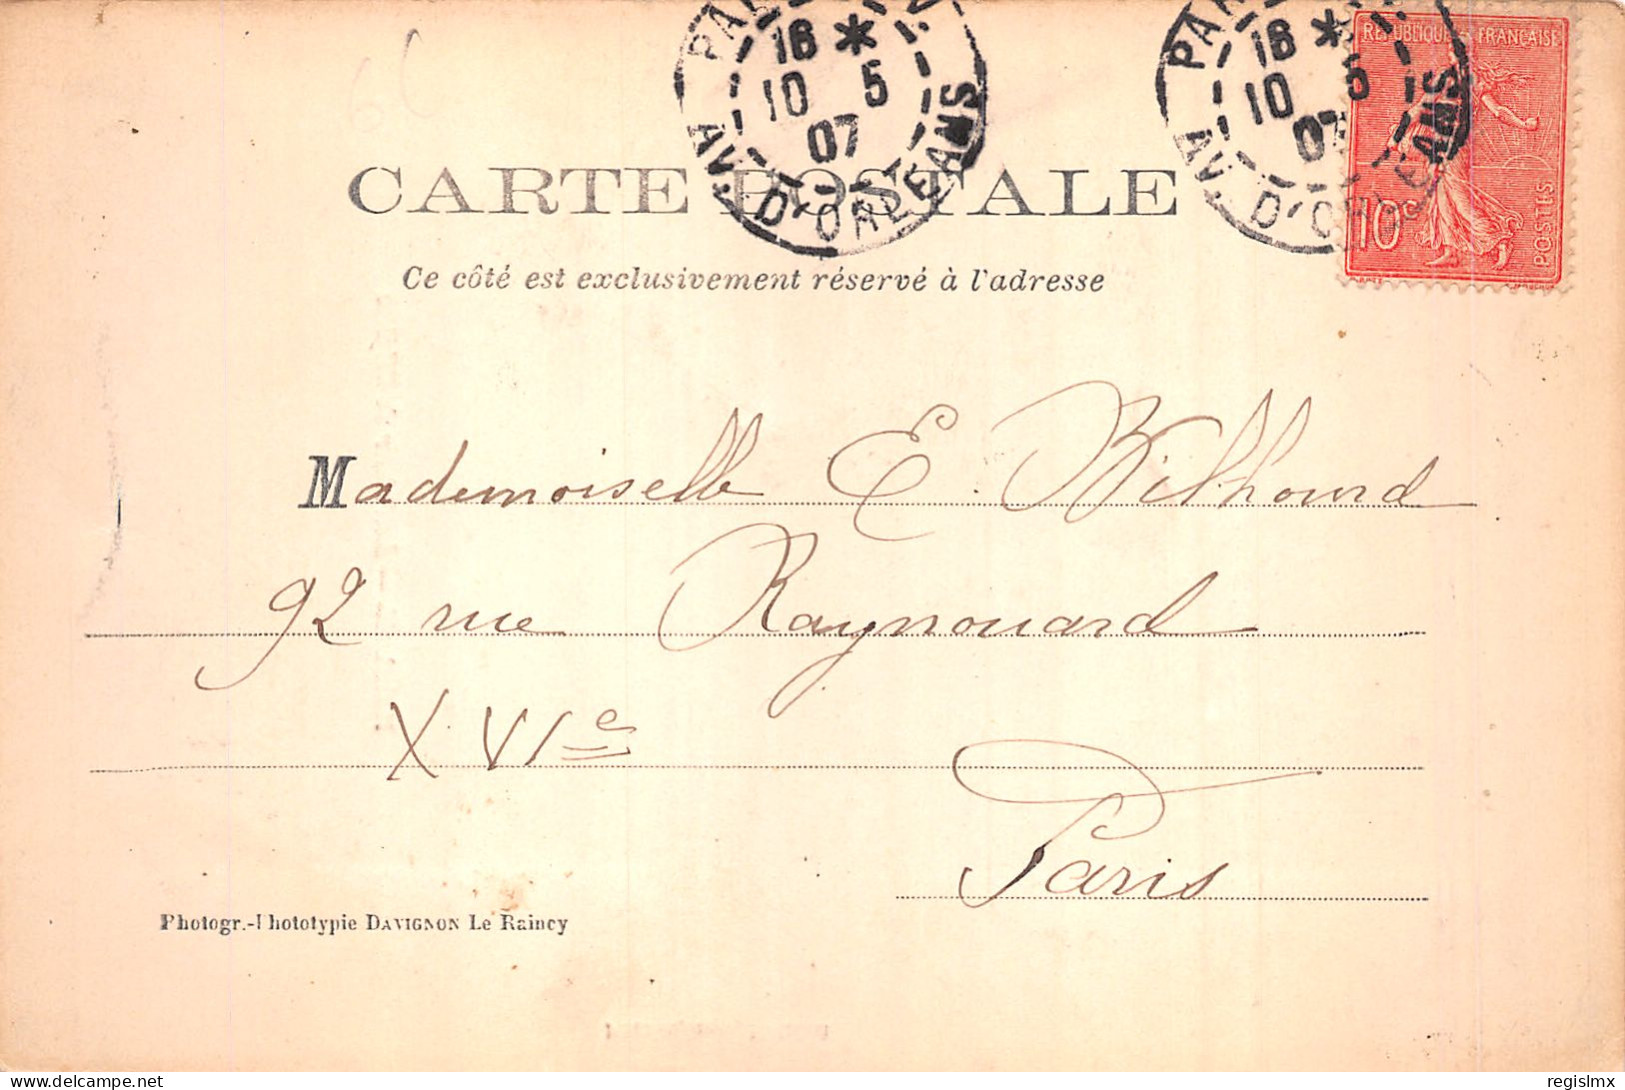 PAR
18 *
10 5
07
AV. D'ORLEANS
PAR
18 *
10 5
07
AV. D'ORLEANS
REPUBLIQUE FRANÇAISE
10c
POSTES
CARTE POSTALE
Ce côté est exclusivement réservé à l'adresse
Mademoiselle E.
92 rue Raynouard
XVIe
Paris
Photogr.-Phototypie DAVIGNON Le Raincy
regislmx